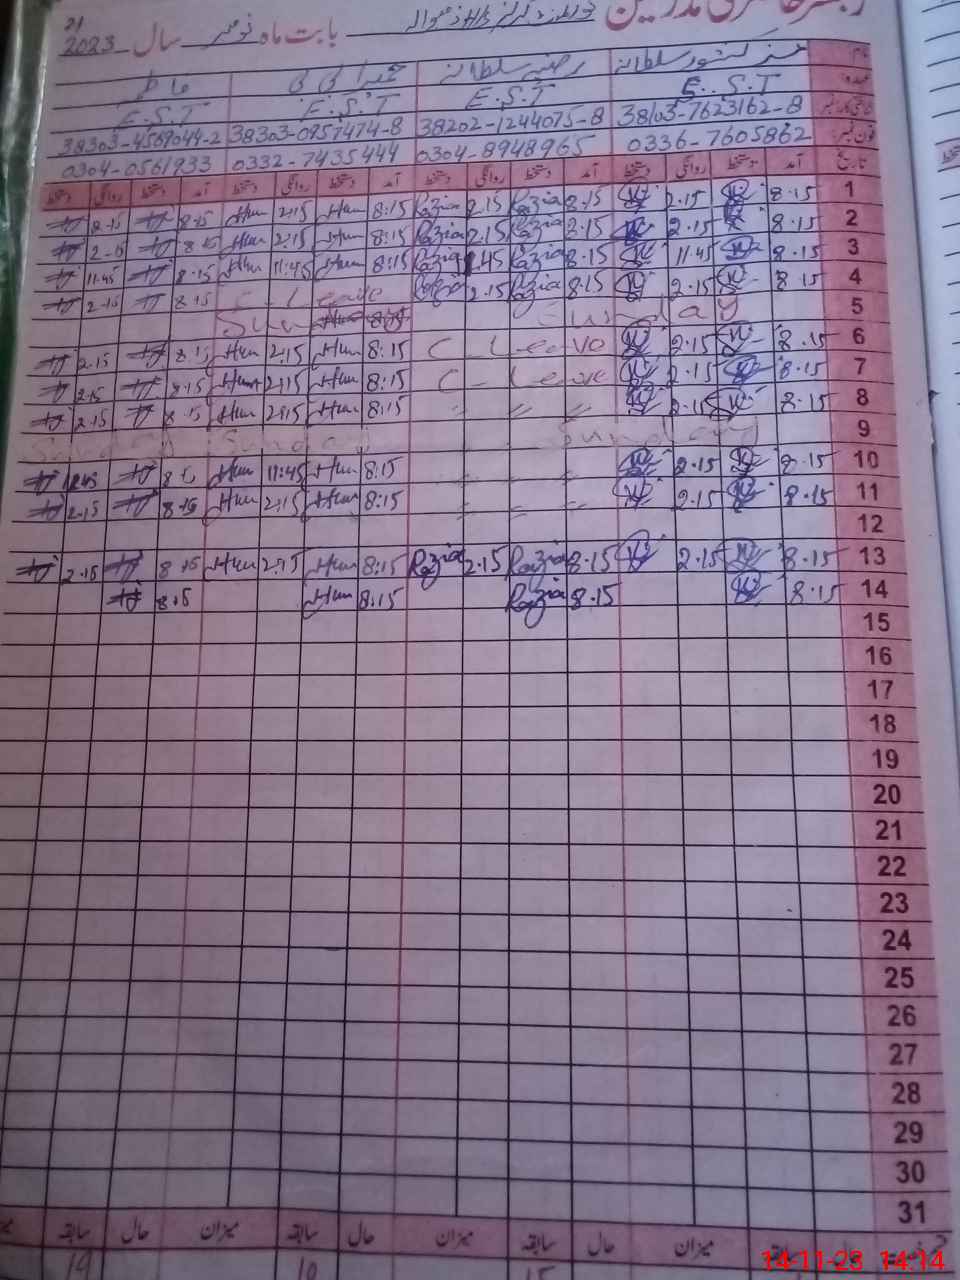 رجسٹر حاضری مدرسین بابت ماہ نومبر سال 2023
21
مسز کشور سلطانہ رضیہ سلطانہ حمیرا بی بی فاطمہ
E.S.T E.S.T E.S.T E.S.T
38103-7623162-8 38202-1244075-8 38303-0957474-8 38303-4569044-2
0336-7605862 0304-8948965 0332-7435444 0304-0561933
تاریخ آمد دستخط روانگی دستخط آمد دستخط روانگی دستخط آمد دستخط روانگی دستخط آمد دستخط روانگی دستخط
1 8.15 2.15 8.15 Razia 2.15 Razia 8:15 Hum 2:15 Hum 8.15 2.15
2 8.15 2.15 2.15 Razia 2.15 Razia 8:15 Hum 2:15 Hum 8.15 2.15
3 8.15 11.45 8.15 Razia 1.45 Razia 8:15 Hum 11:45 Hum 8.15 11.45
4 8.15 2.15 8.15 Razia 2.15 Razia C-Leave 8.15 2.15
5 Sunday Sun
6 8.15 2.15 C-Leave 8:15 Hum 2:15 Hum 8.15 2.15
7 8.15 2.15 C-Leave 8:15 Hum 2:15 Hum 8.15 2.15
8 8.15 2.15 〃 〃 〃 8:15 Hum 2:15 Hum 8.15 2.15
9 Sunday Sunday Sunday
10 8.15 2.15 8:15 Hum 11:45 Hum 8.15 11.45
11 8.15 2.15 〃 〃 〃 8:15 Hum 2:15 Hum 8.15 2.15
12
13 8.15 2.15 8.15 Razia 2.15 Razia 8:15 Hum 2:15 Hum 8.15 2.15
14 8.15 8.15 Razia 8:15 Hum 8.15
15
16
17
18
19
20
21
22
23
24
25
26
27
28
29
30
31
حال میزان حال سابقہ میزان حال سابقہ میزان حال سابقہ
10 19
14-11-23 14:14